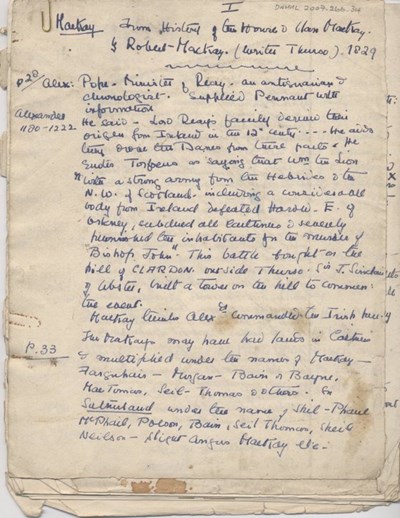 I
DNHHL 2009.266.34
Mackay From History of the House & Clan Mackay.
by Robert Mackay. (Writer Thurso). 1829
p 20 Alex: Pope. Minister of Reay. an antiquarian &
chronologist. Supplied Pennant with
information
Alexander
1180-1222.
He said - Lord Reay's family derive their
origin from Ireland in the 12th centy .... He aids
they drove the Danes from these parts & He
quotes Torfaeus as saying that Wm the Lion
"with a strong army from the Hebrides & the
N.W. of Scotland. including a considerable
body from Ireland defeated Harold. E. of
Orkney, subdued all Caithness & severely
punished the inhabitants for the murder of
"Bishop John". This battle fought on the
hill of CLARDON. outside Thurso. Sir J. Sinclair
of Ulbster, built a tower on the hill to commem:
the event.
Mackay thinks Alexr commanded the Irish
P.33 The Mackays may have had lands in Caithness
& multiplied under the names of Mackay -
Farquhair - Morgan - Bain & Bayne,
MacTomas, Seil-Thomas & others. In
Sutherland under the name of Shil-Phaul
McPhail, Polson, Bain, Seil Thomas, Sheil
Neilson - Slight Angus Mackay etc: